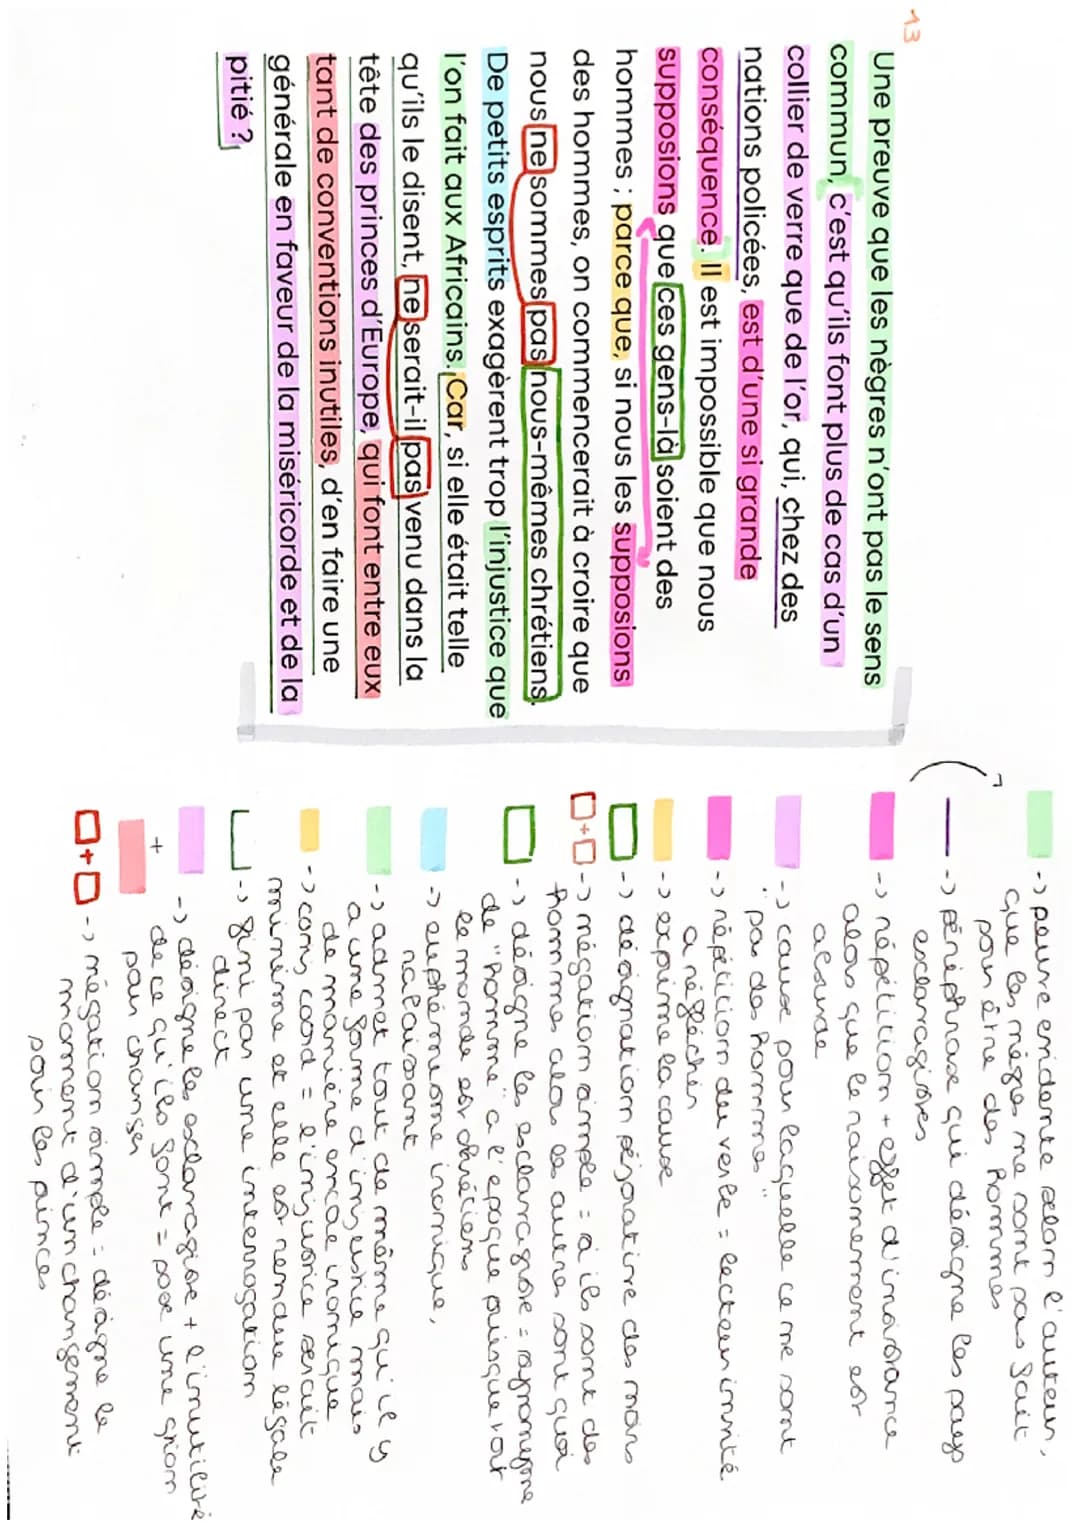 13
Une preuve que les nègres n'ont pas le sens
commun, c'est qu'ils font plus de cas d'un
collier de verre que de l'or, qui, chez des
nations policées, est d'une si grande
conséquence. Il est impossible que nous
supposions que ces gens-là soient des
hommes ; parce que, si nous les supposions
des hommes, on commencerait à croire que
nous ne sommes pas nous-mêmes chrétiens.
De petits esprits exagèrent trop l'injustice que
l'on fait aux Africains. Car, si elle était telle
qu'ils le disent, ne serait-il pas venu dans la
tête des princes d'Europe, qui font entre eux
tant de conventions inutiles, d'en faire une
générale en faveur de la miséricorde et de la
pitié ?
-> preuve evidente selon l'auteur,
que les nègres ne sont pas fait
pour être des hommes
-> périphrase qui désigne les pays
esclavagistes
-> répétition + effet d'insistance
alors que le raisonnement est
absurde
-> cause pour laquelle ce ne sont
"pas des hommes"
-> répétition du verbe = lecteur invité
a réfléchir
-> exprime la cause
-> désignation péjorative des noirs
+ -> négation simple = si ils sont des
hommes alors les autres sont quoi
-> désigne les esclavagiste = synonyme
de "homme" a l'époque puisque tout
le monde est chrétiens
-> euphémisme ironique,
rabaissant
-> admet tout de même qu'il y
a une forme d'injustice mais
de manière encore ironique
-> conj coord = l'injustice serait
minime et elle est rendue légale
-> fini par une interrogation
direct
+ -> désigne les esclavagiste + l'inutilité
de ce qu'ils font = pose une
pour changer
+ -> négation simple = désigne le
moment d'un changement
pour les princes